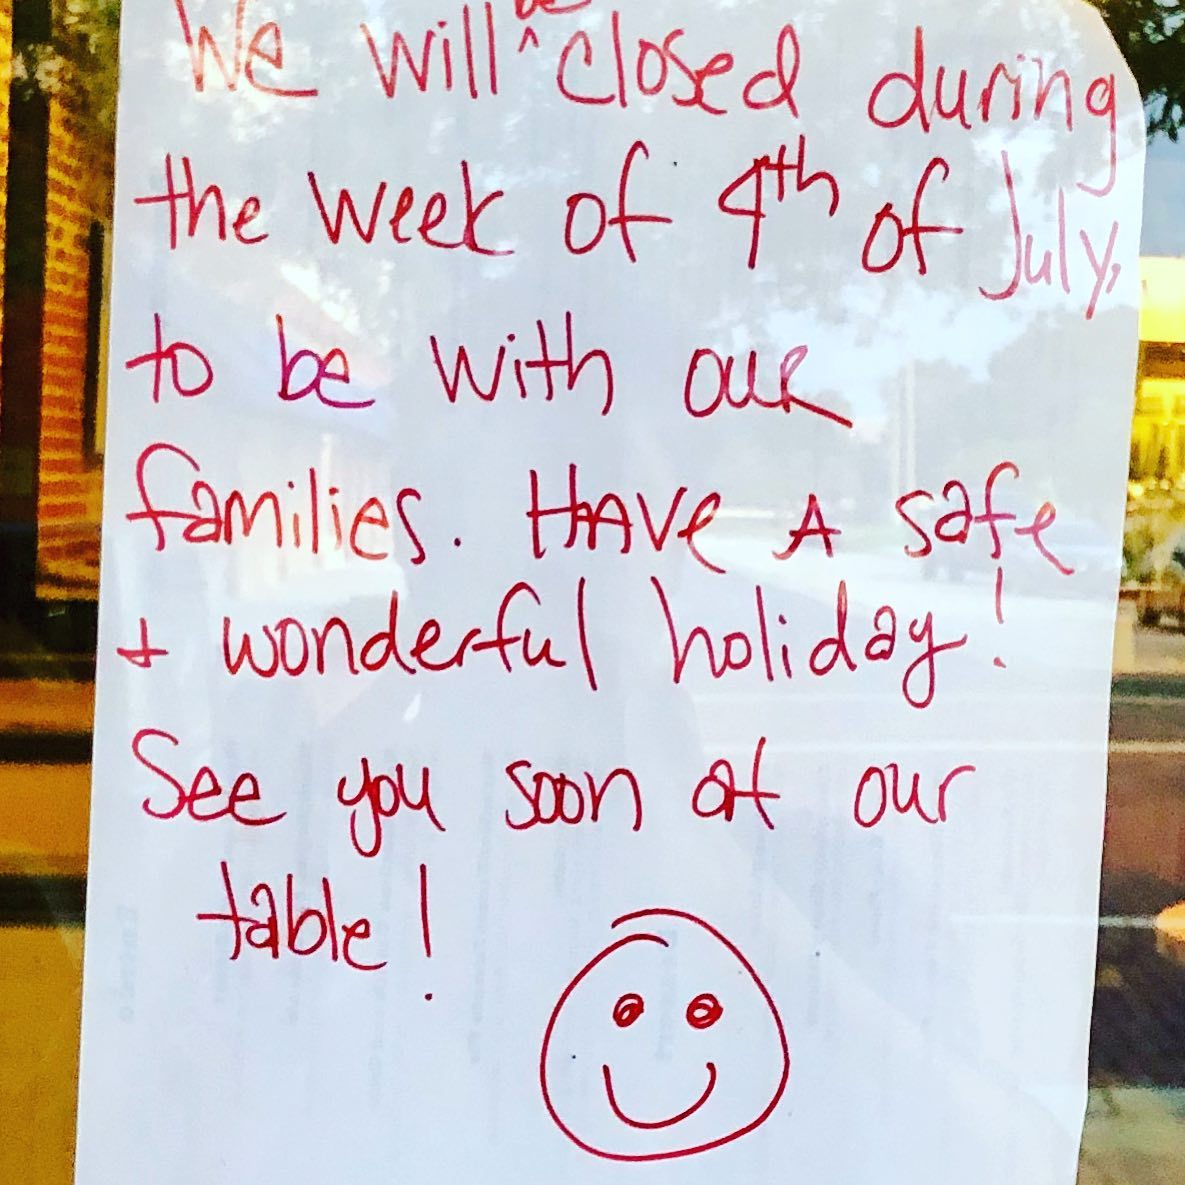 We will be closed during
the week of 4th of July,
to be with our
families. Have A safe
+ wonderful holiday!
See you soon at our
table!